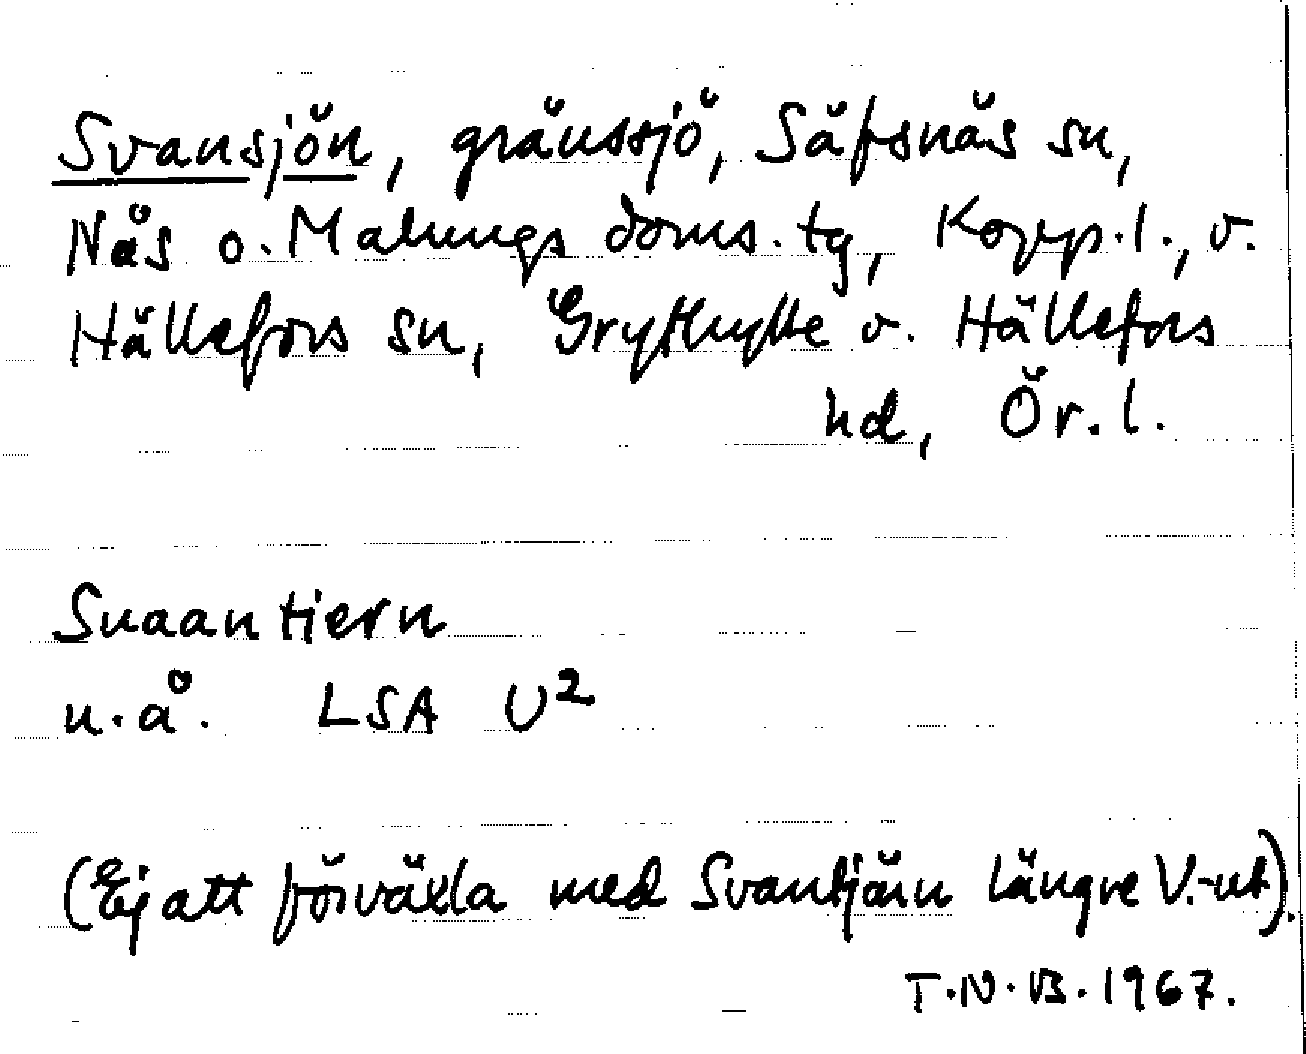 Svansjön, gränssjö, Säfsnäs sn,
Nås o. Malungs doms. tg, Kopp.l., o.
Hällefors sn, Grythytte o. Hällefors
hd, Ör.l.
Suaantiern
u.å. LSA U²
(Ej att förväxla med Svantjärn längre V.-ut).
T.N.B. 1967.